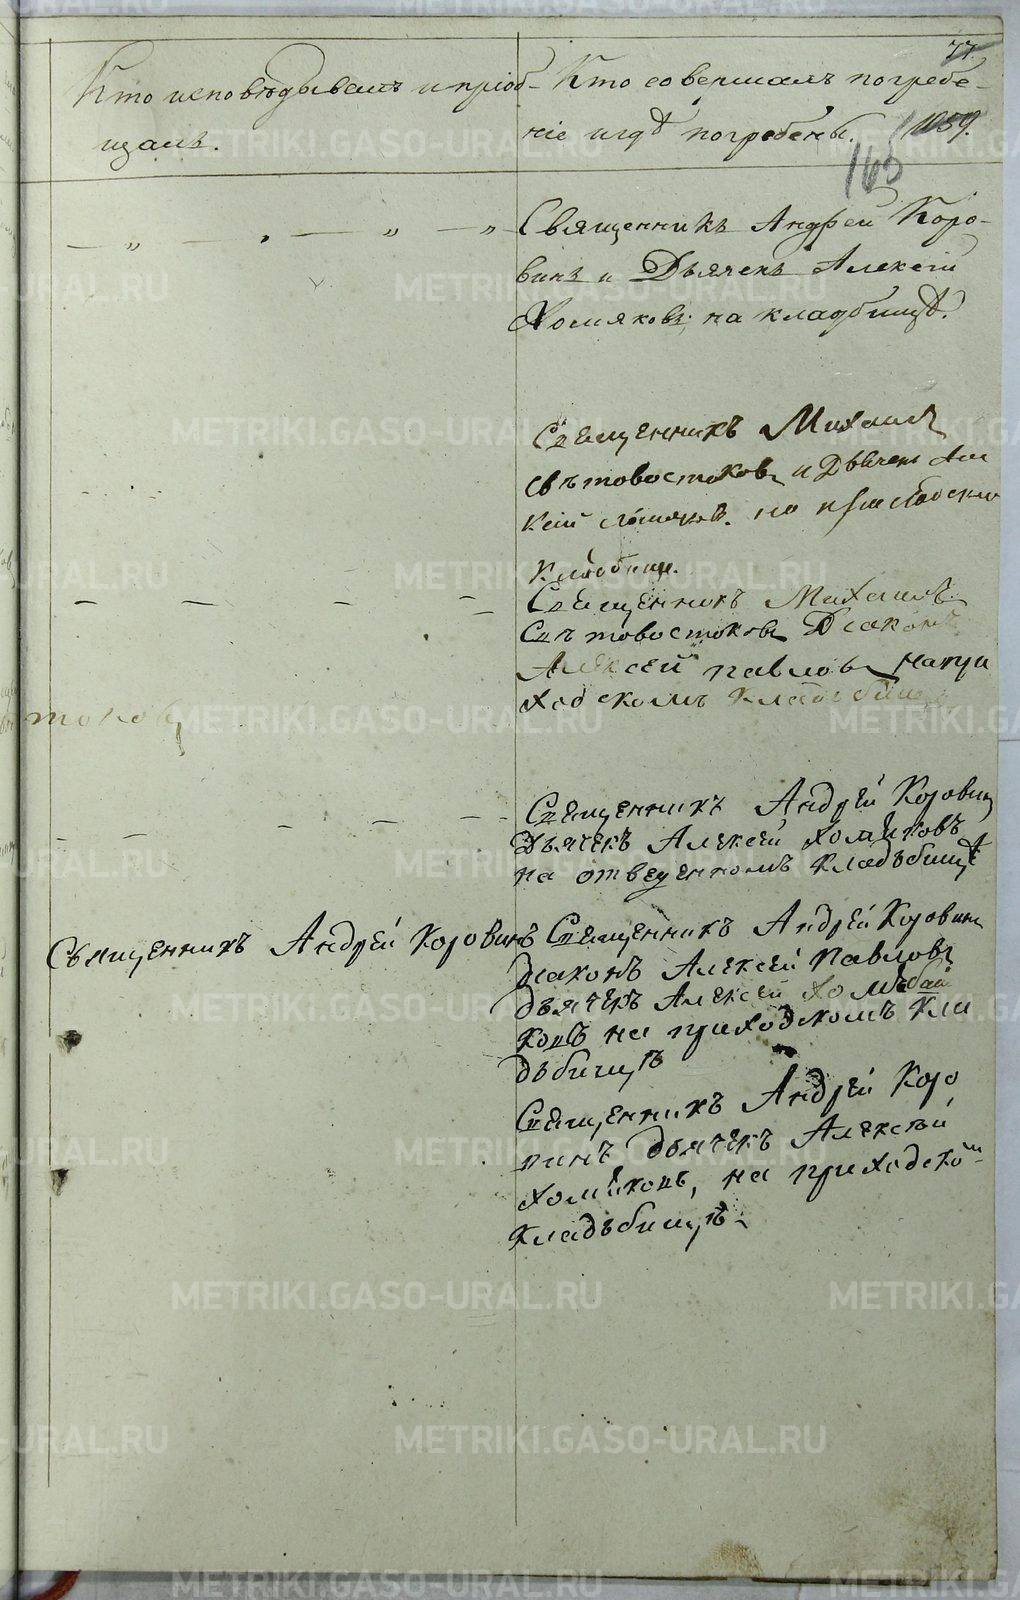 77.
Кто исповѣдывалъ и пріоб-
щалъ.
Кто совершалъ погребе-
ніе и гдѣ погребены.
165
Священникъ Андрей Коро-
винъ и Дьячекъ Алексѣй
Хомяковъ; на кладбищѣ.
Священникъ Михаилъ
Свѣтовостоковъ и Дьячекъ Але
ксѣй
Кладбище.
Священникъ Михаилъ
Свѣтовостоковъ Діаконъ
Алексей Павловъ на при
ходскомъ кладбище
токовъ
Священникъ Андрей Коровинъ
Дьячекъ Алексей Хомяковъ
на отведенномъ кладьбищѣ
Священникъ Андрей Коровинъ
Священникъ Андрей Коровинъ
Діаконъ Алексей Павловъ
дьячекъ Алексей Хомя
ковъ на приходскомъ кла
дьбищѣ
Священникъ Андрей Коро
винъ дьячекъ Алексѣй
Хомяковъ, на приходском
кладьбищѣ.
METRIKI.GASO-URAL.RU